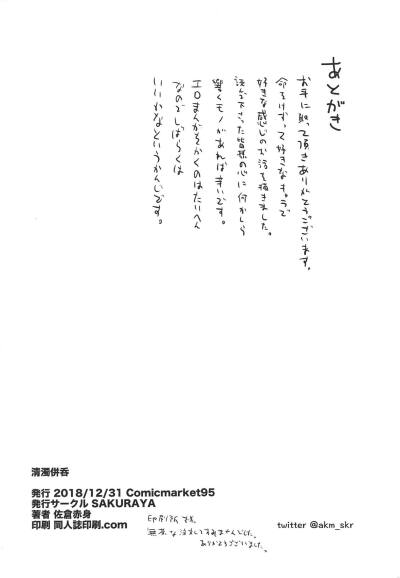 あとがき
お手に取って頂きありがとうございます。
命をけずって好きなキャラで
好きな感じのお話を描きました。
読んで下さった皆様の心に何かしら
響くモノがあれば幸いです。
エロまんがをかくのはたいへん
なのでしばらくは
いいかなというかんじです。
清濁併呑
発行 2018/12/31 Comicmarket95
発行サークル SAKURAYA
著者 佐倉赤身
印刷 同人誌印刷.com
印刷所 様
無茶な注文してすみませんでした。
ありがとうございました。
twitter @akm_skr